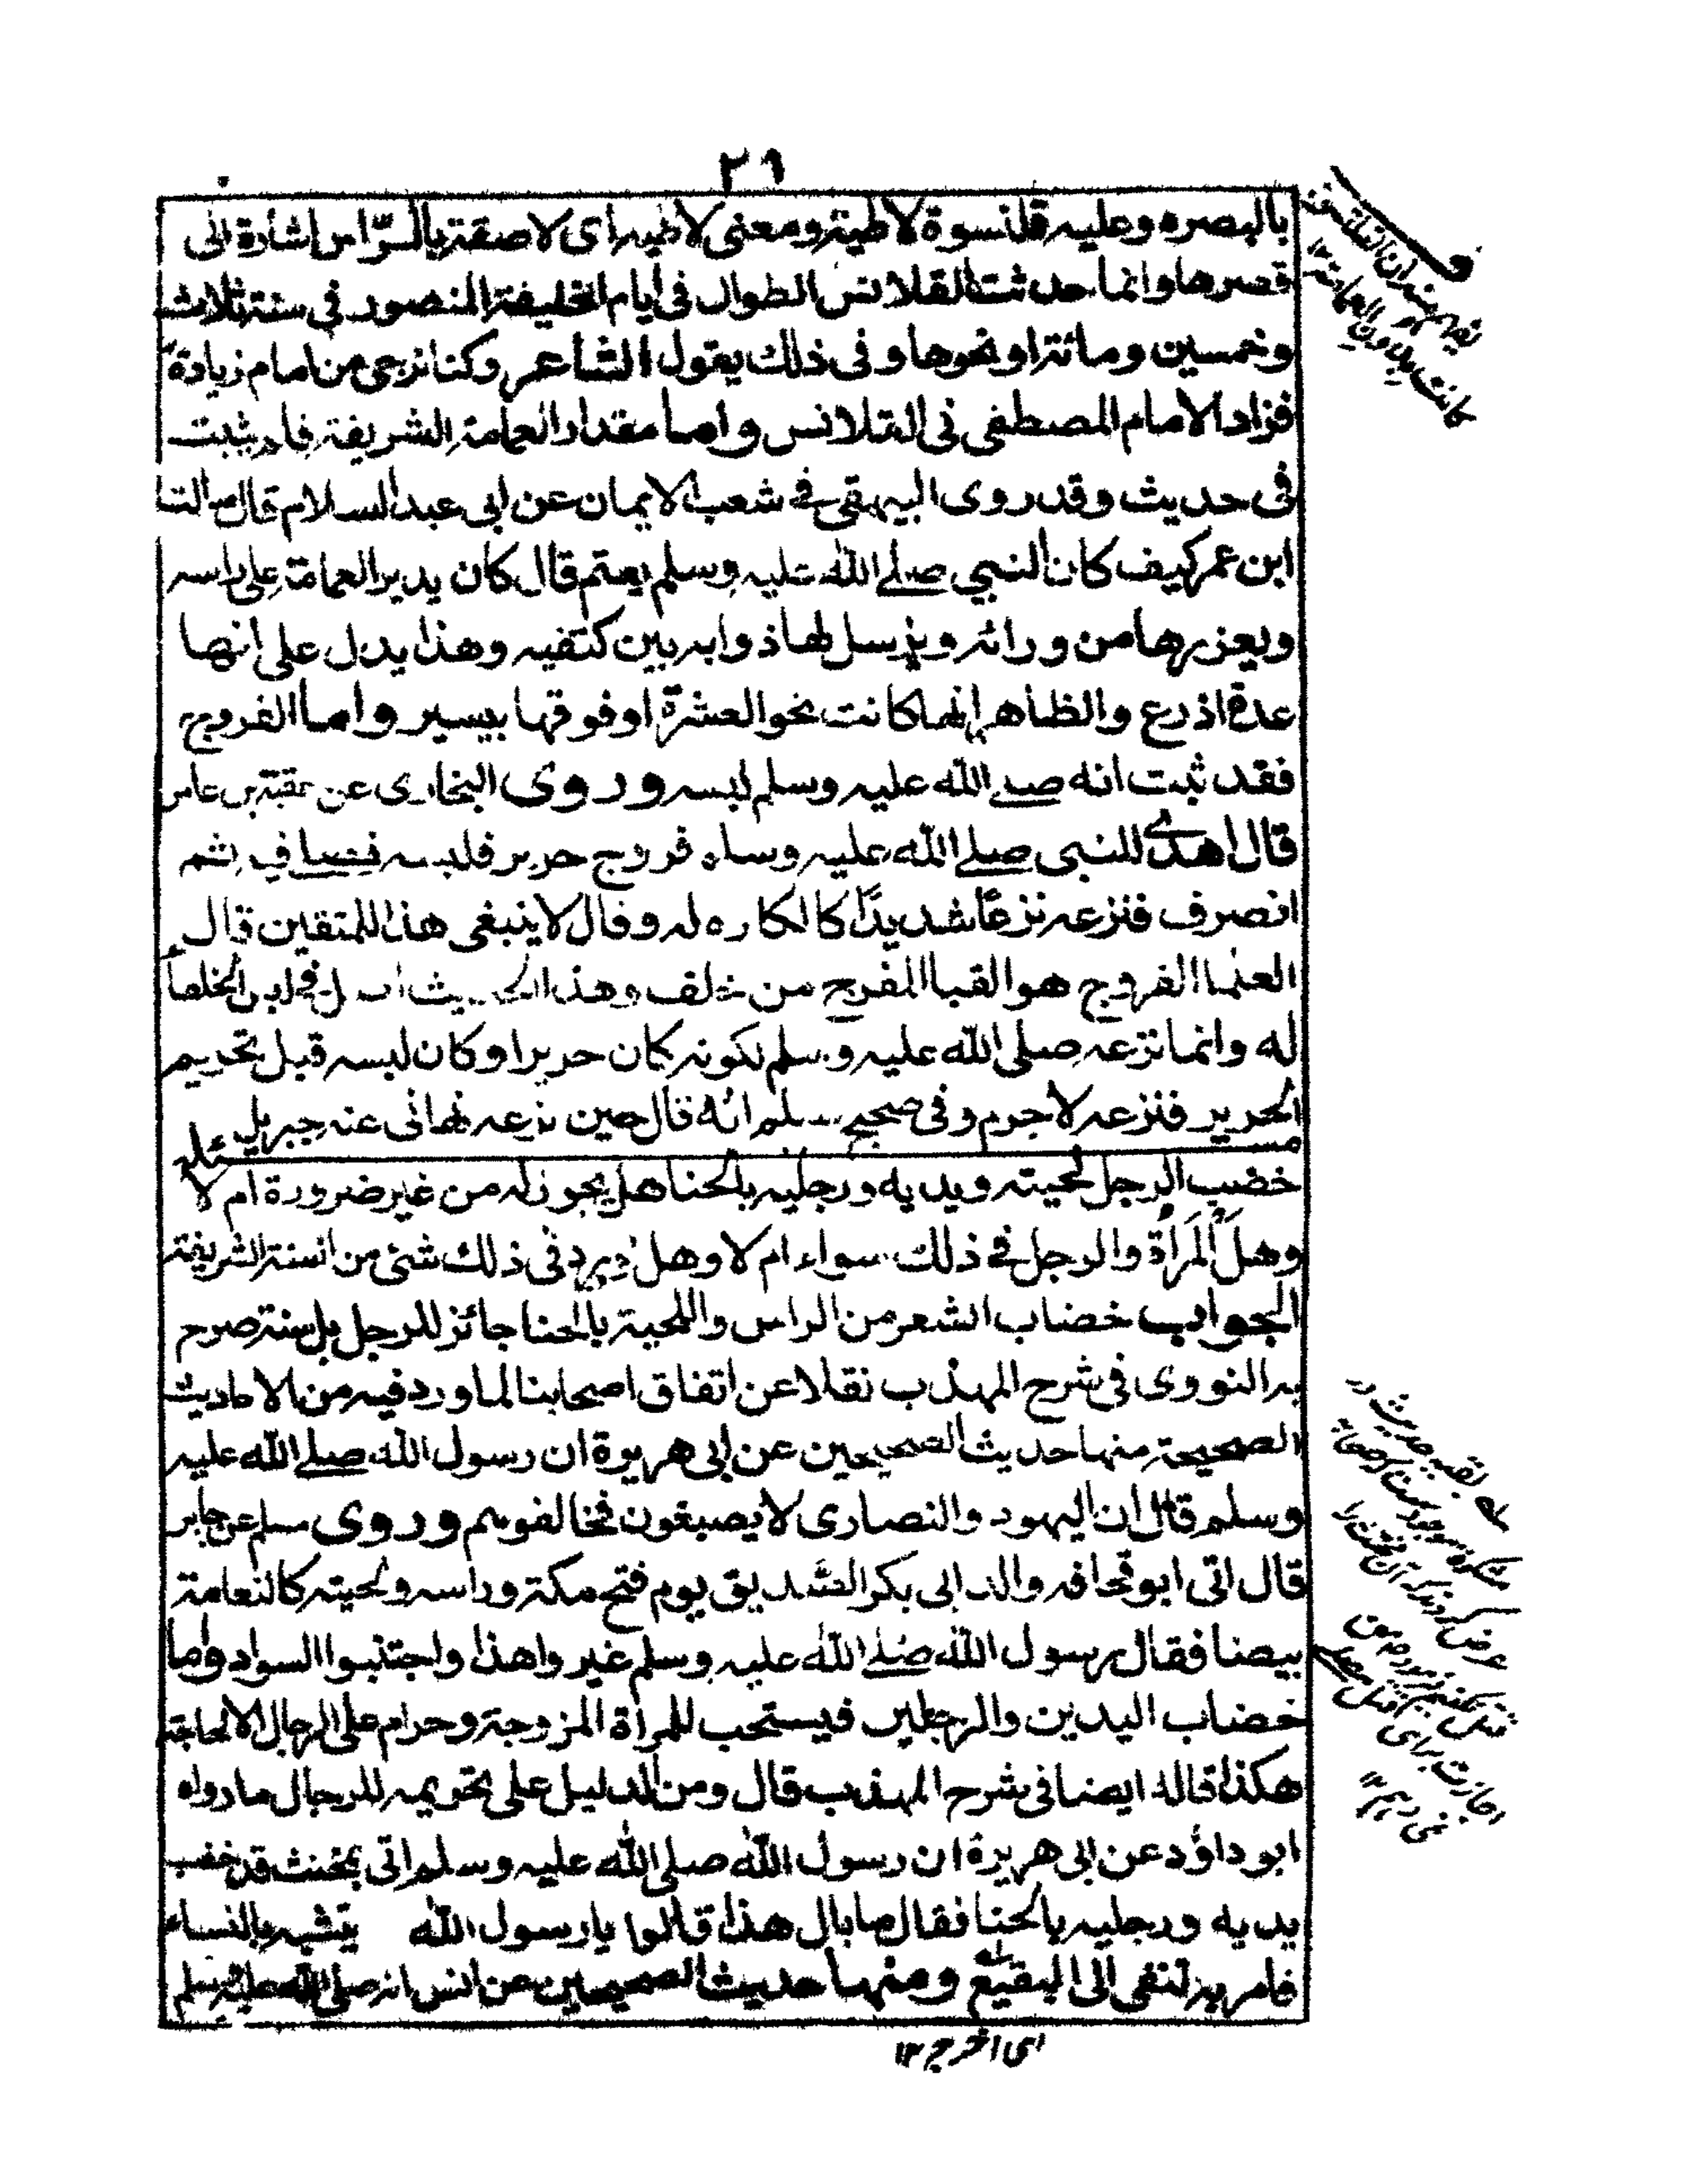 ٢٦
بالبصره وعليه قلنسوة لاطية ومعنى لاطيه اى لاصقة بالرّاس اشارة الى
قصرها وانما حدثت القلانس الطوال فى ايام الخليفة المنصور فى سنة ثلاث
وخمسين ومائة او نحوها وفى ذلك يقول الشاعر وكنا نرجى من امام زيادة
فزاد الامام المصطفى فى القلانس واما مقدار العمامة الشريفة فلم يثبت
فى حديث وقد روى البيهقى فے شعب الايمان عن ابى عبد السلام قال سالت
ابن عمر كيف كان النبي صلے الله عليه وسلم يعتم قال كان يدير العمامة على راسه
ويعزرها من ورائه ويرسل لها ذوابه بين كتفيه وهذا يدل على انها
عدة اذرع والظاهر انها كانت نحو العشرة او فوقها بيسير واما الفروج
فقد ثبت انه صلے الله عليه وسلم لبسه وروى البخارى عن عقبة بن عامر
قال اهدے للنبى صلے الله عليه وسلم فروج حرير فلبسه فصلى فيه ثم
انصرف فنزعه نزعًا شديدًا كالكاره له وقال لا ينبغى هذا للمتقين قال
العلما الفروج هو القبا المفرج من خلف وهذا الحديث اصل فى لبس الخلفا
له وانما نزعه صلى الله عليه وسلم لكونه كان حريرا وكان لبسه قبل تحريم
الحرير فنزعه لا جرم وفى صحيح مسلم انه قال حين نزعه نهانى عنه جبريل
مسئله
خضب الرجل لحيته ويديه ورجليه بالحنا هل يجوز له من غير ضرورة ام لا
وهل المَرأة والرجل فے ذلك سواء ام لا وهل ورد فى ذلك شئ من السنة الشريفة
الجواب خضاب الشعر من الراس واللحية بالحنا جائز للرجل بل سنة صرح
به النووى فى شرح المهذب نقلا عن اتفاق اصحابنا لما ورد فيه من الاحاديث
الصحيحة منها حديث الصحيحين عن ابى هريرة ان رسول الله صلے الله عليه
وسلم قال ان اليهود والنصارى لا يصبغون فخالفوهم وروى مسلم عن جابر
قال اتى ابو قحافه والد ابى بكر الصديق يوم فتح مكة وراسه ولحيته كالنعامة
بيضا فقال رسول الله صلے الله عليه وسلم غيروا هذا واجتنبوا السواد واما
خضاب اليدين والرجلين فيستحب للمرأة المزوجة وحرام على الرجال الا لحاجة
هكذا قاله ايضا فى شرح المهذب قال ومن الدليل على تحريمه للرجال ما رواه
ابو داؤد عن ابى هريرة ان رسول الله صلى الله عليه وسلم اتى بمخنث قد خضب
يديه ورجليه بالحنا فقال ما بال هذا قالوا يا رسول الله يتشبه بالنساء
فامر به لنفى الى البقيع ومنها حديث الصحيحين عن انس انه صلى الله عليه وسلم
اى اخرج ١٢